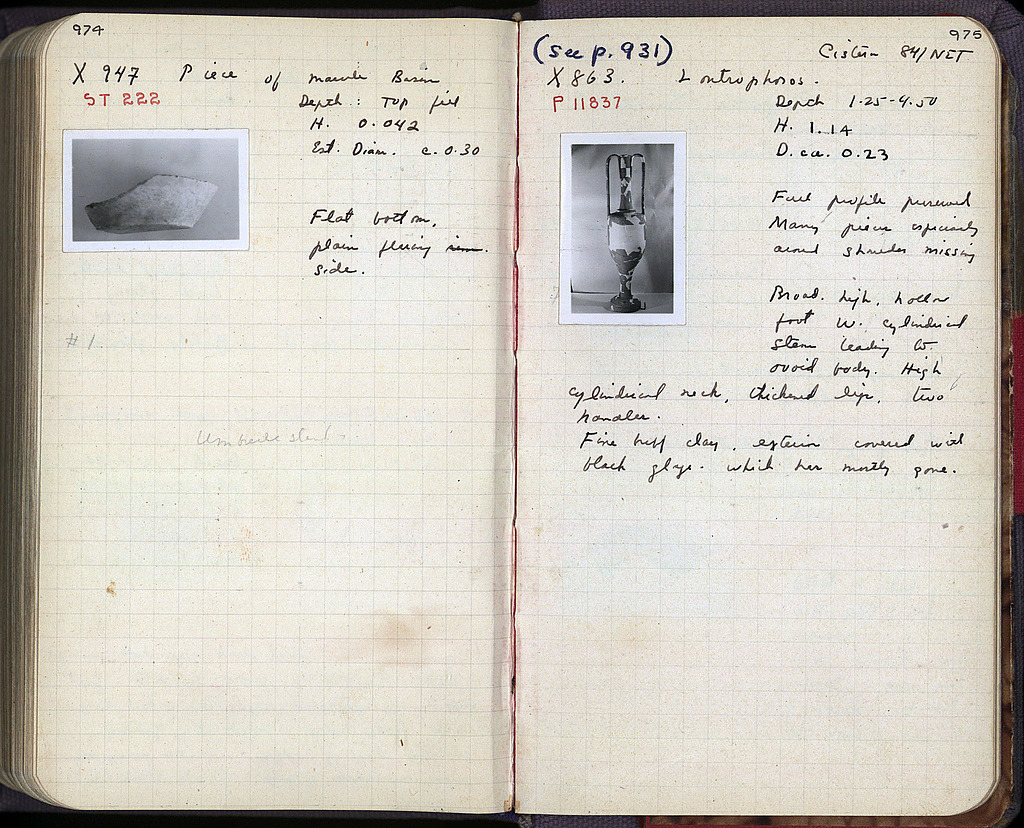 974
X 947 Piece of marble Basin
ST 222
Depth : Top fill
H. 0.042
Est. Diam. c. 0.30
Flat bottom,
plain flaring
side.
# 1
975
(See p. 931)
Cistern 84/NET
X 863. Loutrophoros.
P 11837
Depth 1.25-4.50
H. 1.14
D. ca. 0.23
Full profile preserved
Many pieces especially
around shoulder missing
Broad. high, hollow
foot w. cylindrical
stem leading to
ovoid body. High
cylindrical neck, thickened lip, two
handles.
Fine buff clay, exterior covered with
black glaze. which has mostly gone.